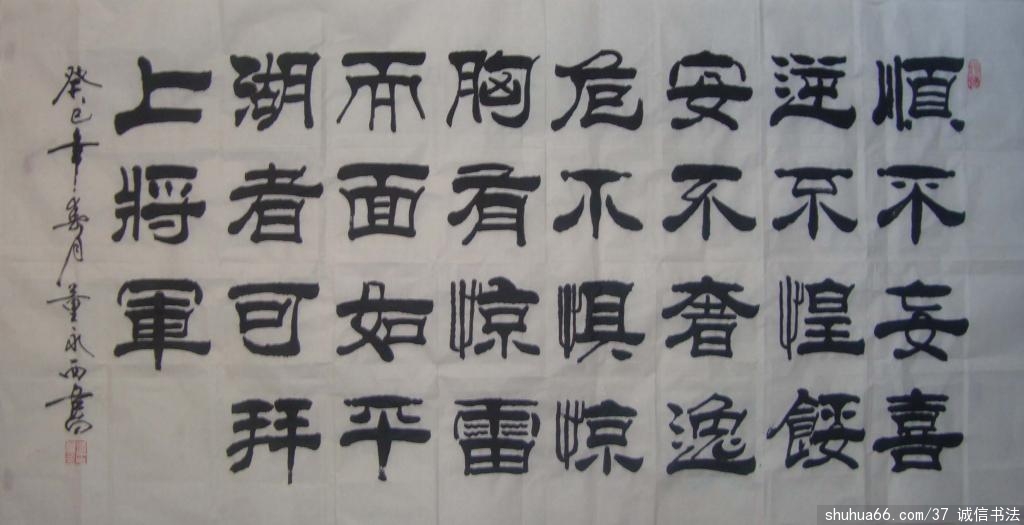 順不妄喜
逆不惶餒
安不奢逸
危不惧惊
胸有惊雷
而面如平
湖者可拜
上將軍
癸巳年 月董永西書
shuhua66.com/37 诚信书法